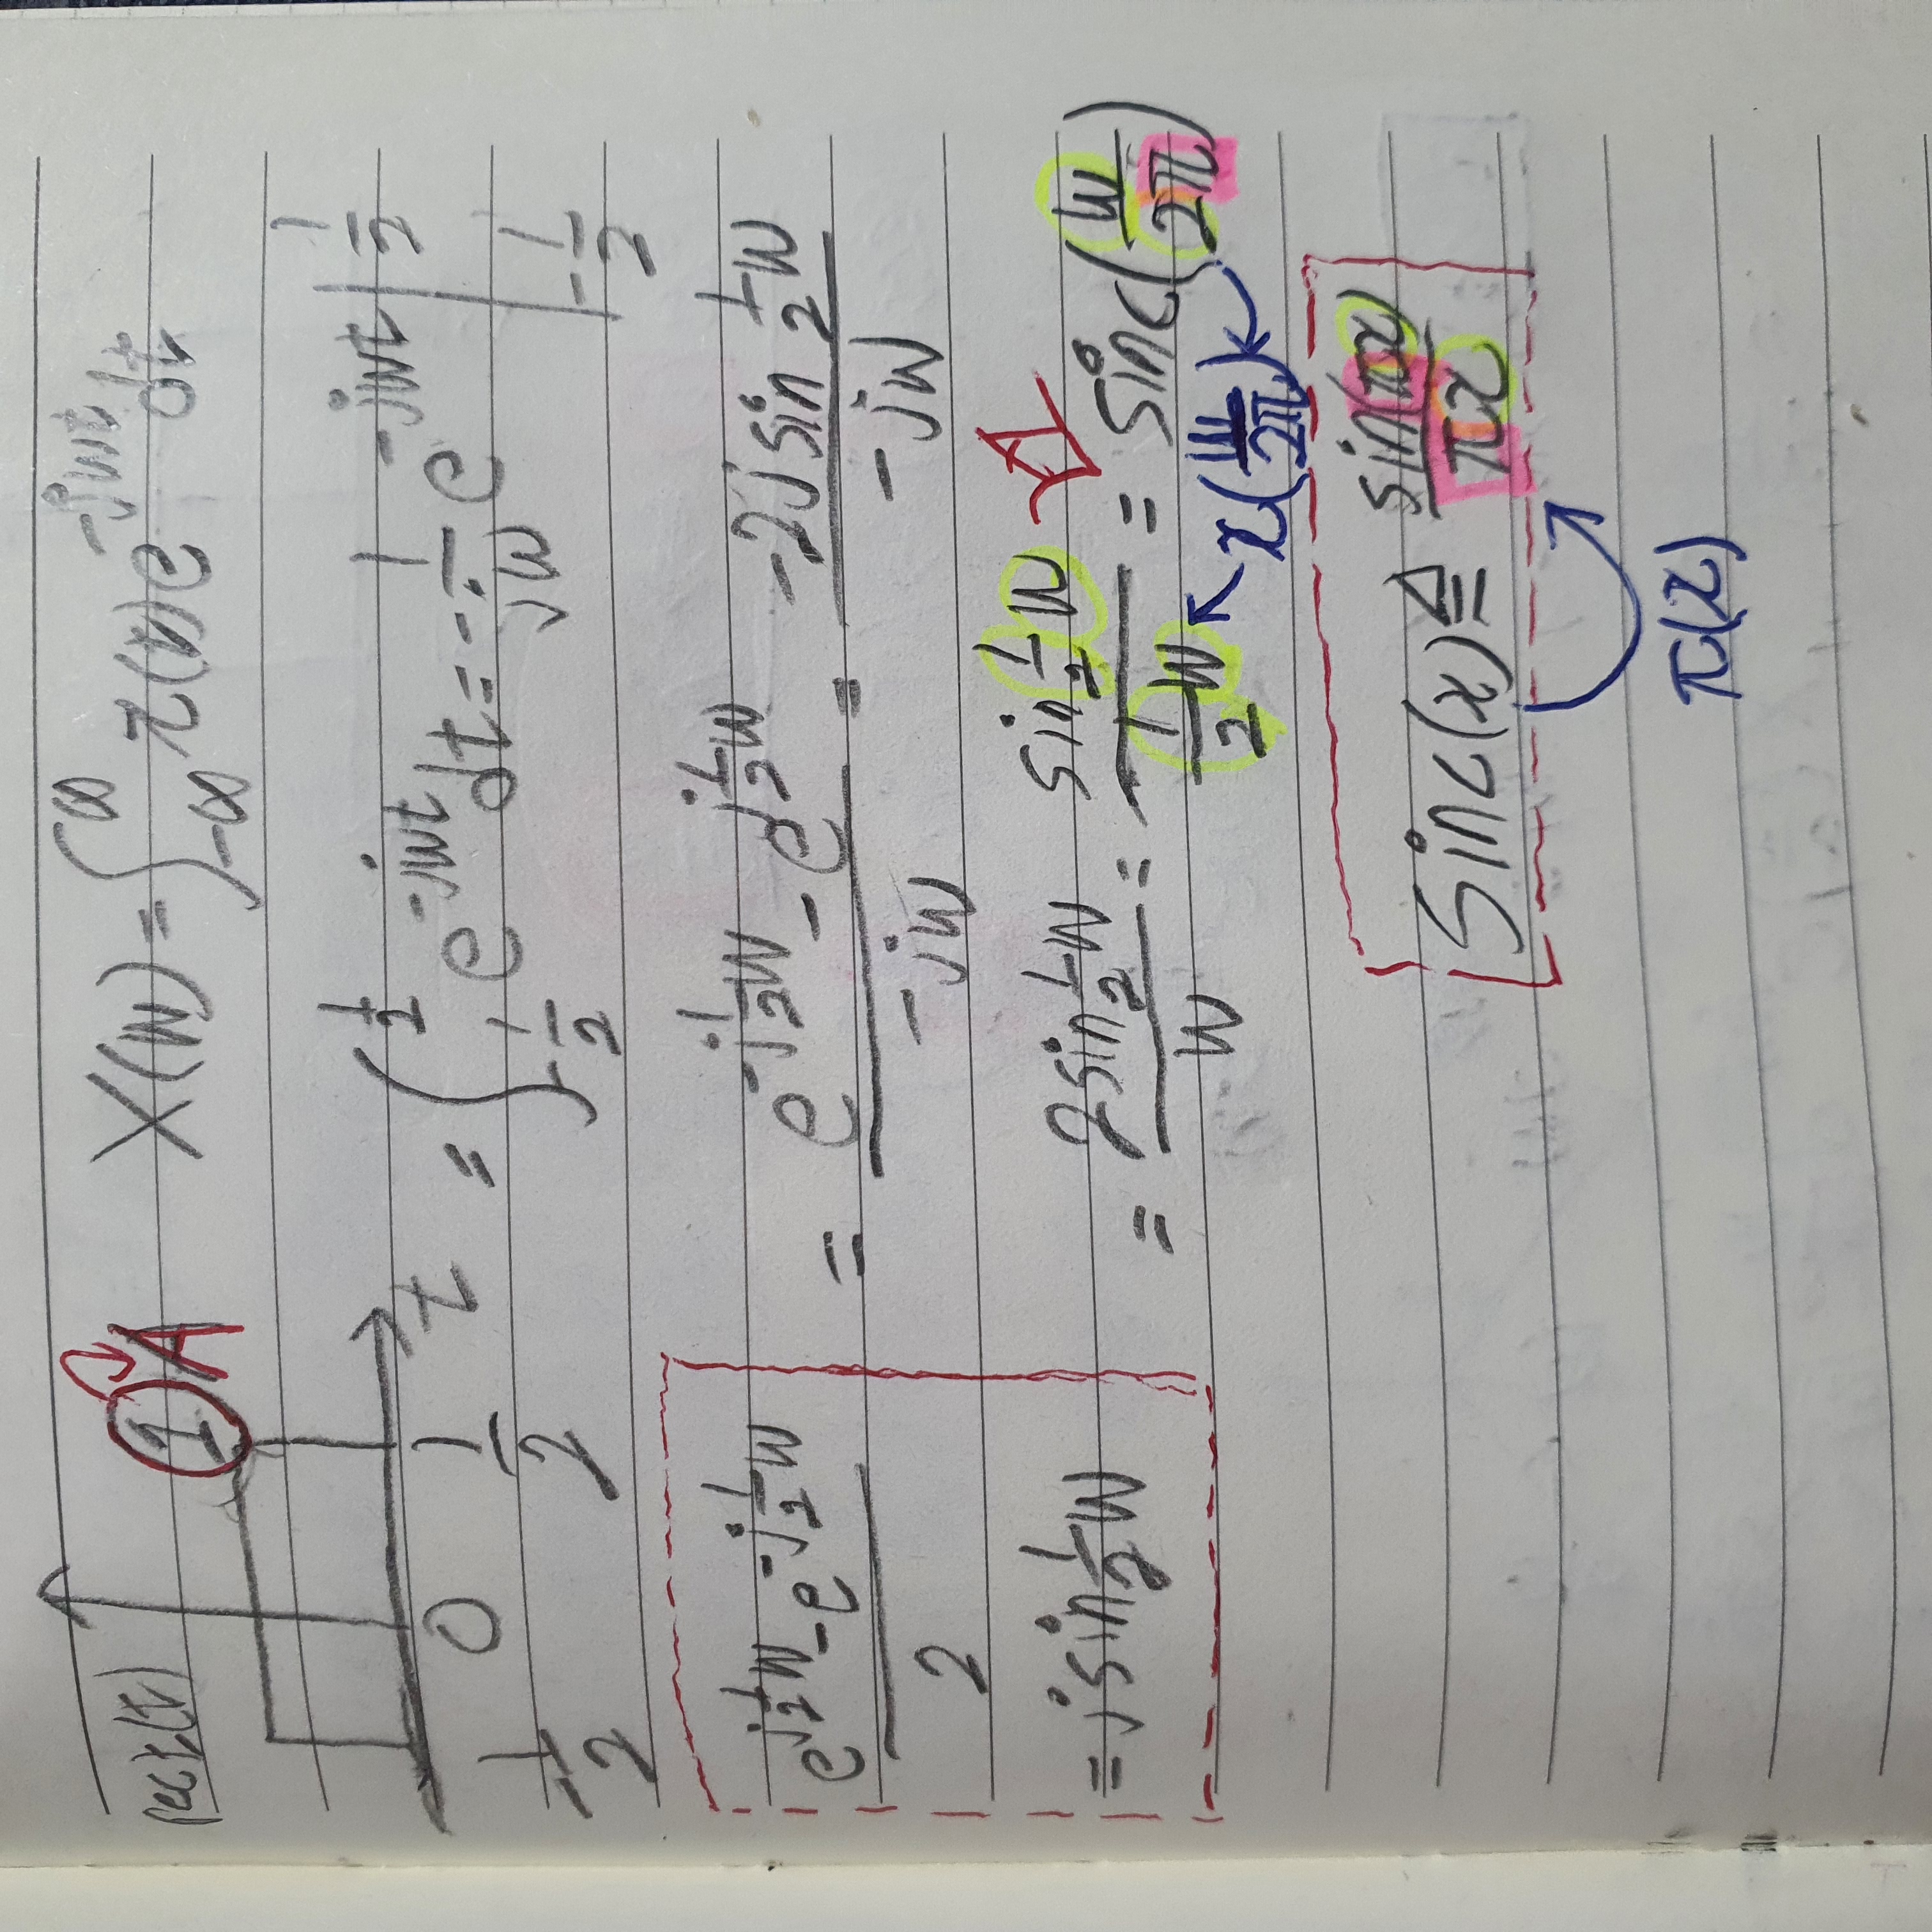 rect(t) 1 A
X(w) = ∫_{-∞}^{∞} x(t)e^{-jwt}dt
-1/2 0 1/2 t
= ∫_{-1/2}^{1/2} e^{-jwt}dt = -1/jw e^{-jwt} |_{-1/2}^{1/2}
(e^{j1/2w} - e^{-j1/2w})/2
= j sin 1/2 w
= (e^{-j1/2w} - e^{j1/2w})/-jw = (-2j sin 1/2 w)/-jw
= (2 sin 1/2 w)/w = (sin 1/2 w)/(1/2 w) = A sinc(w/2π)
x(w/2π)
Sinc(x) ≜ sin(πx)/πx
π(x)